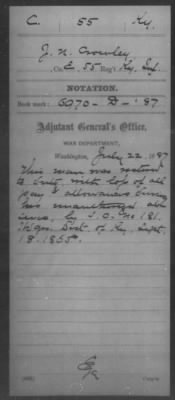 C. 55 Ky.
J. N. Crowley
Co. E, 55 Reg't Ky. Inf.
NOTATION.
Book mark: 6070-D-'87
Adjutant General's Office,
WAR DEPARTMENT,
Washington, July 22, 1887
This man was restored
to duty with loss of all
pay & allowances during
his unauthorized abs
ence, by S.O. No 181.
Hdqrs. Dist. of Ky. Sept.
18. 1865.
Copyist.